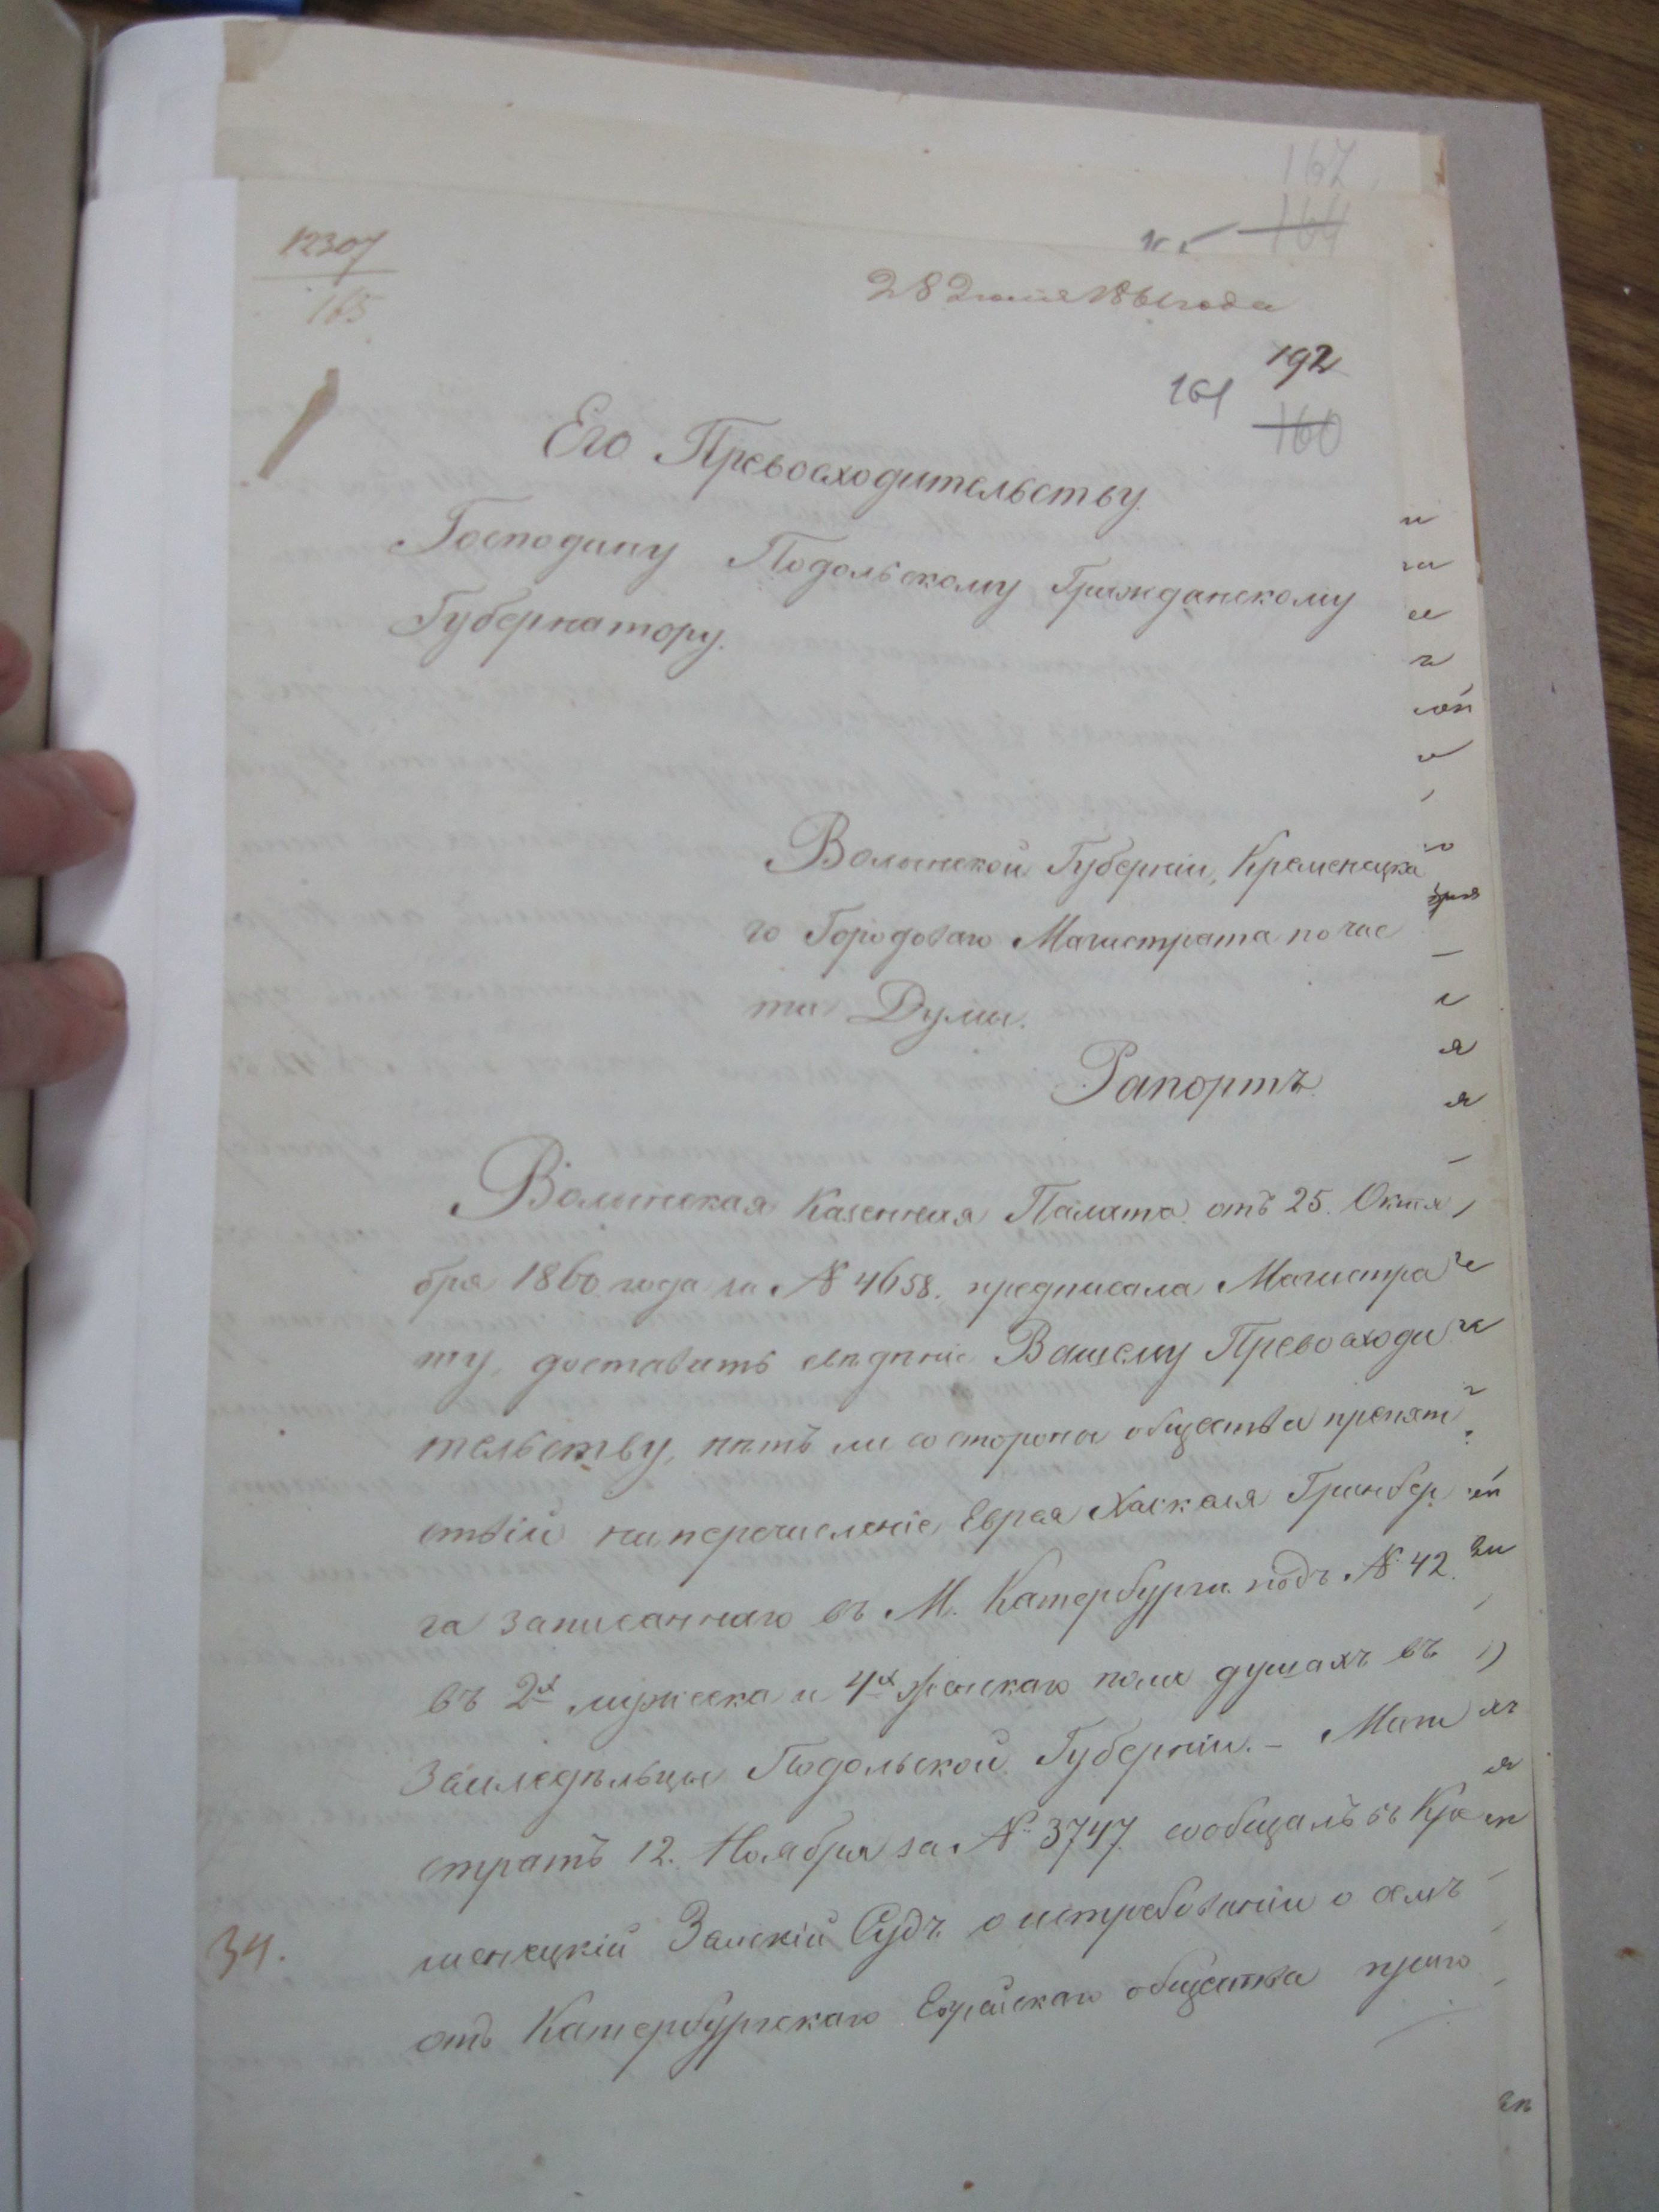 167
164
12307
165
28 Июля 1861 года
192
161
160
Его Превосходительству
Господину Подольскому Гражданскому
Губернатору.
Волынской Губерніи, Кременецка
го Городоваго Магистрата по час
ти Думы.
Рапортъ
Волынская Казенная Палата отъ 25. Октя
бря 1860 года за № 4658. предписала Магистра
ту, доставить свѣдѣніе Вашему Превосходи
тельству, нѣтъ ли со стороны общества препят
ствій на перечисленіе Еврея Хаскеля Гринбер
га записаннаго въ М. Катербурги подъ № 42.
въ 2х мужеска и 4х женскаго пола душахъ въ
Земледѣльцы Подольской Губерніи. – Маги
стратъ 12. Ноября за № 3747. сообщалъ въ Кре
менецкій Земскій Судъ о истребованіи о семъ
34.
отъ Катербургскаго Еврейскаго общества